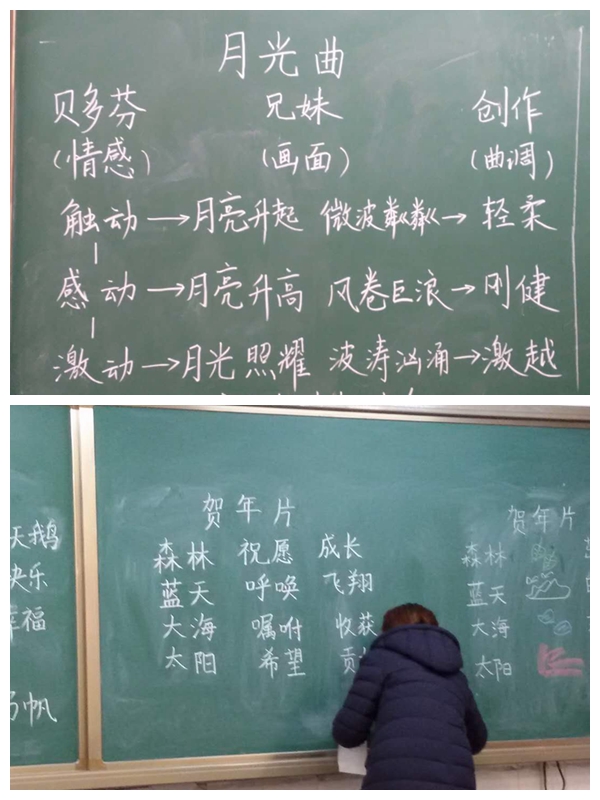 月光曲
贝多芬 兄妹 创作
(情感) (画面) (曲调)
触动→月亮升起 微波粼粼→轻柔
感动→月亮升高 风卷巨浪→刚健
激动→月光照耀 波涛汹涌→激越
天鹅
快乐
幸福
帆
贺年片
森林 祝愿 成长
蓝天 呼唤 飞翔
大海 嘱咐 收获
太阳 希望 贡
贺年片
森林
蓝天
大海
太阳